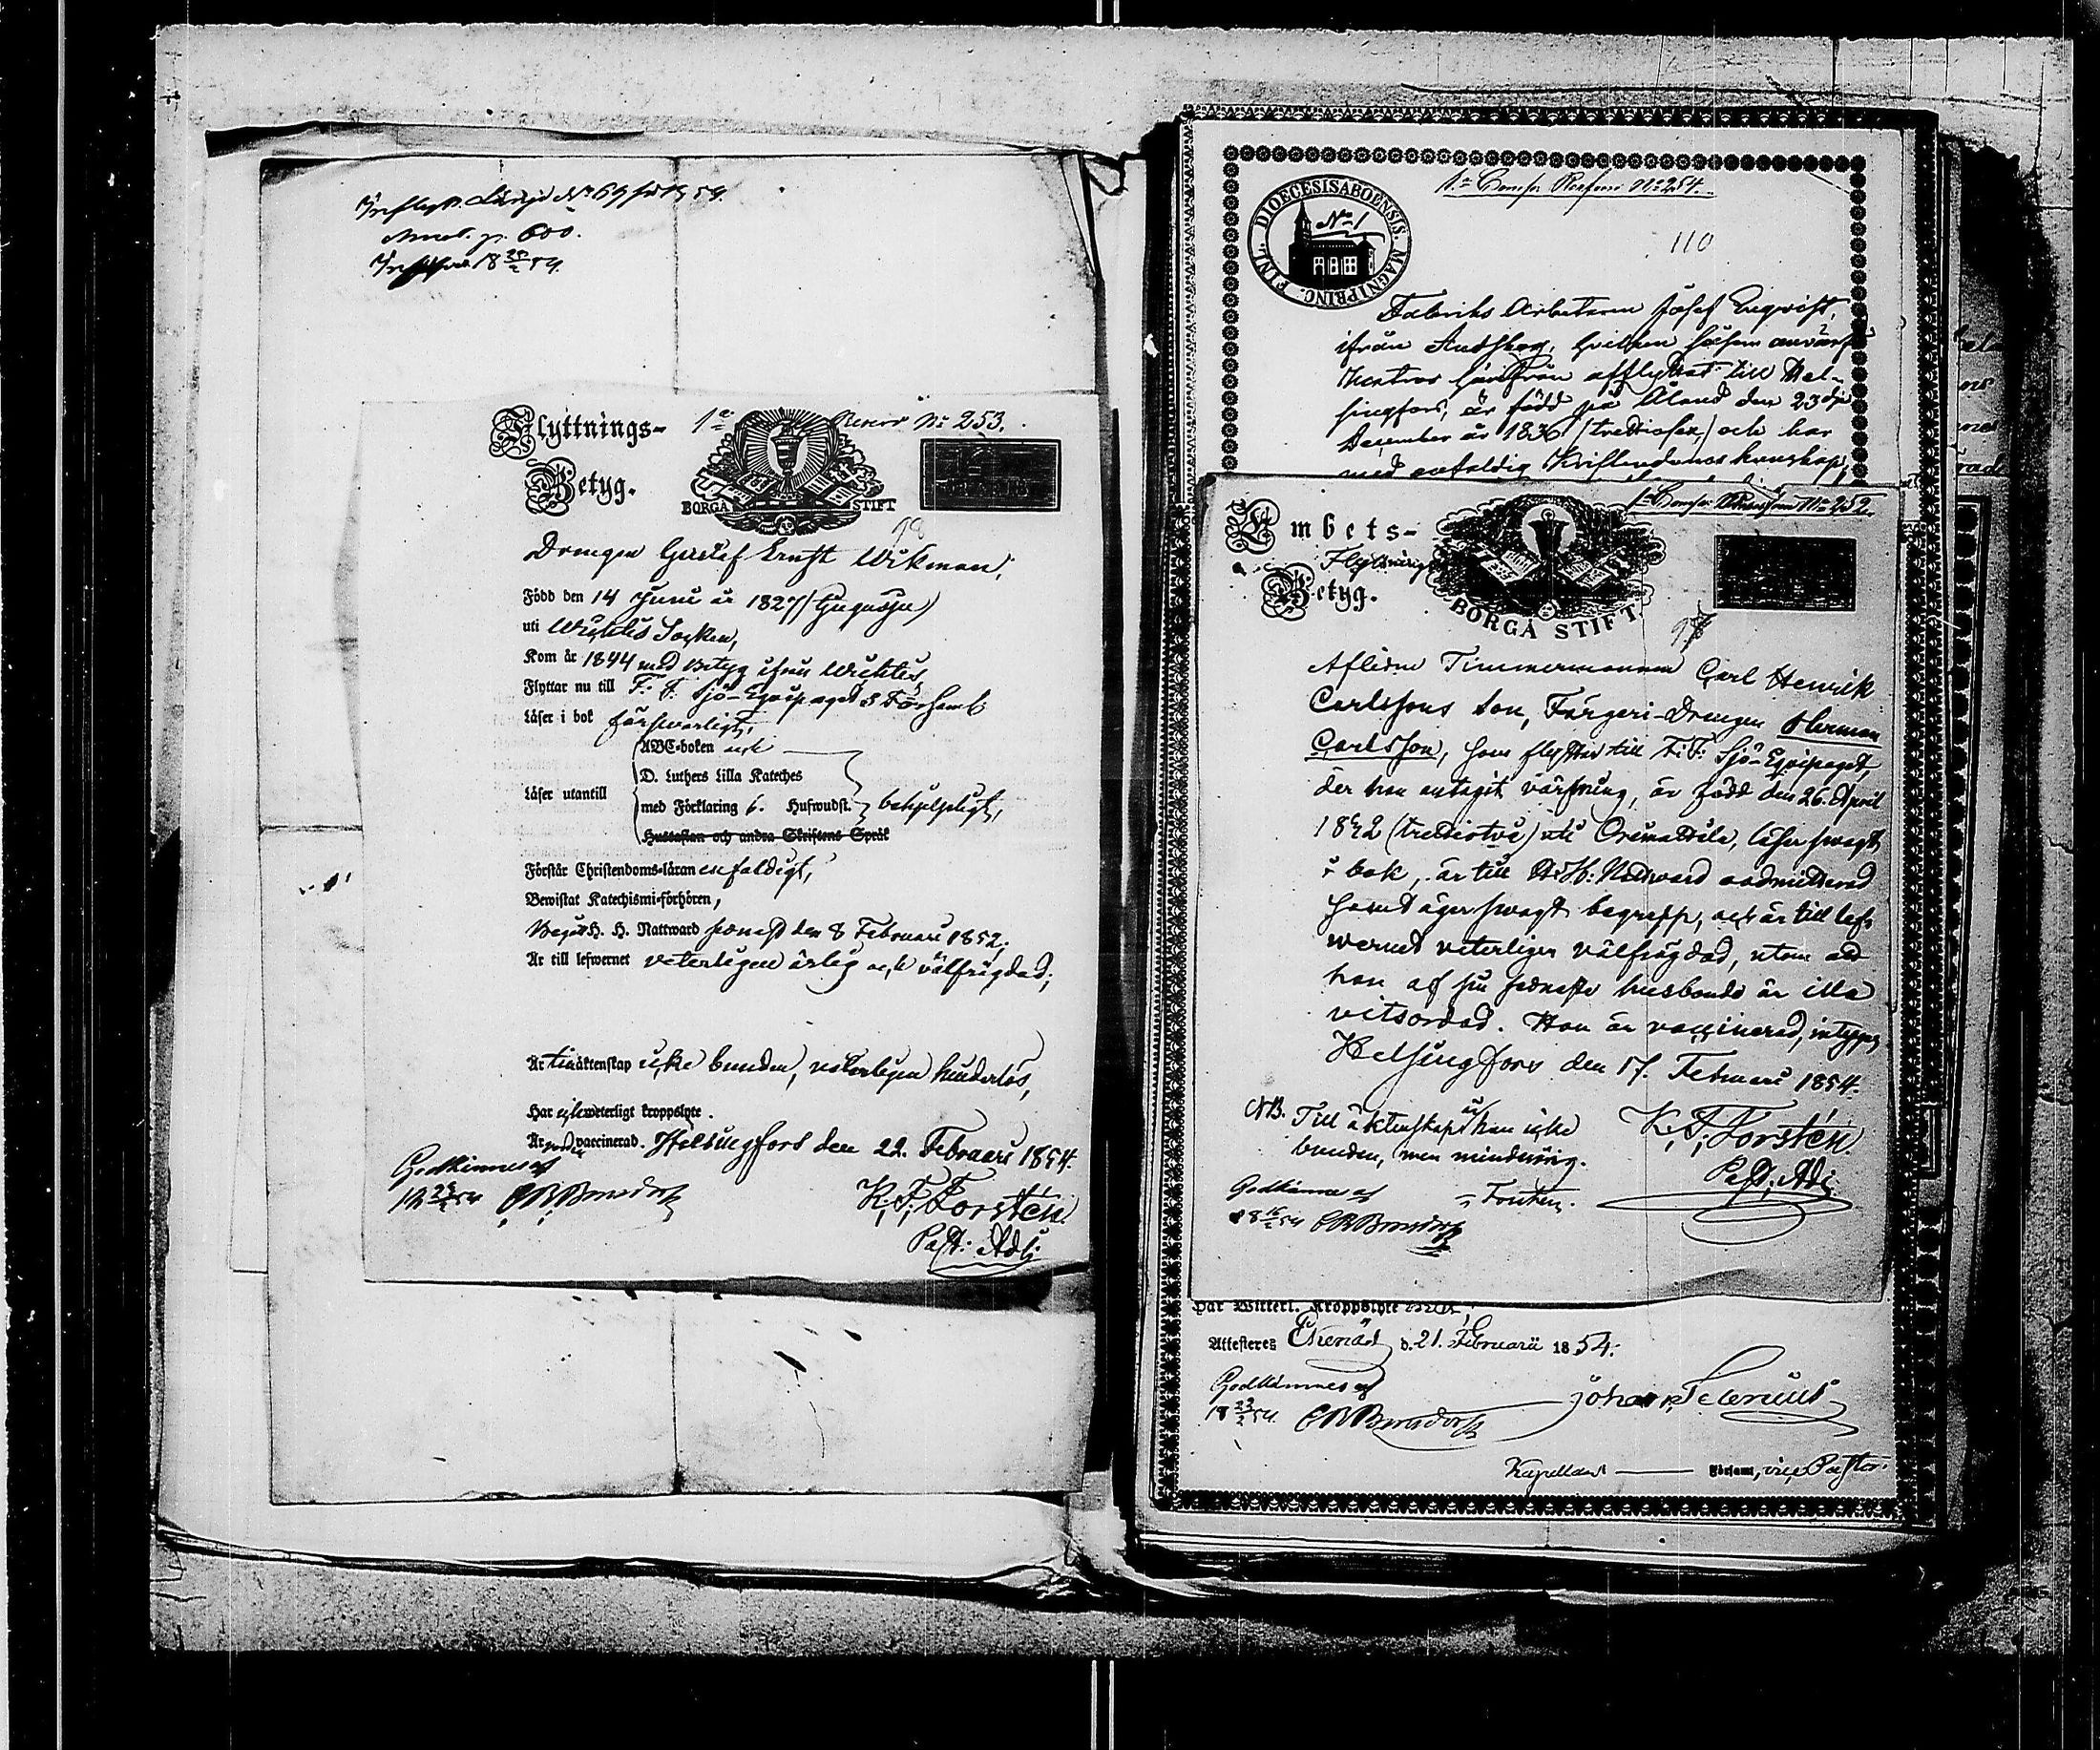 Inflyttn. Längd No 69 för 1854.
p. 600.
Flyttnings-
Betyg.
1a No 253.
BORGÅ STIFT
98
Drengen Gustaf Ernst Wikman,
Född den 14 Junii år 1827 (tjugusju)
uti Wichtis Socken,
Kom år 1844 med betyg ifrån Wichtis,
Flyttar nu till F. F. Sjö-Equipaget's Församl:
Läser i bok försvarligt,
ABC-boken och
D. Luthers Lilla Kateches
Läser utantill med Förklaring 6. Hufwudst. behjelpligt,
Hustaflan och andra Skriftens Språk
Förstår Christendoms-läran enfaldigt,
Bewistat Katechismi-förhören,
Begått H. H. Nattward senast den 8 Februarii 1852,
Är till lefwernet veterligen ärlig och välfrägdad;
Är till äktenskap icke bunden, veterligen hinderlös,
Har icke weterligt kroppslyte.
Är vaccinerad. Helsingfors den 22. Februarii 1854.
Godkännes af
K. F. Forstén.
Past: Adj:
1a Comp. No 254.
DIOECESIS ABOENSIS. MAGNI PRINC. FINL.
No 1
110
Fabriks Arbetaren Josef Engvist,
ifrån hvilken såsom
härifrån afflyttat till Hel-
singfors, är född på Åland den 23dje
December år 1836 (trettiosex,) och har
med enfaldig Kristendoms kunskap,
1a Comp. No 252.
Embets-
Flyttnings
Betyg.
BORGÅ STIFT.
97
Aflidne Timmermannen Carl Henrik
Carlssons son, Färgeri-Drengen Herman
Carlsson, som flyttar till F: F: Sjö-Equipaget,
der han antagit värfning, är född den 26. April
1832 (trettiotvå) uti Orimattila, läser svagt
i bok, är till H: H: Nattvard admitterad
samt äger svagt begrepp, och är till lef-
wernet veterligen välfrägdad, utom att
han af sin sednaste husbonde är illa
vitsordad. Han är vaccinerad, intygas
Helsingfors den 17. Februarii 1854.
NB. Till äktenskap är han icke
bunden, men minderårig.
K: F: Forstén.
Past: Adj:
Godkännes af
Har Witterl. Kroppslyte
Attesteres Ekenäs d. 21. Februarii 1854.
Godkännes af
Johan
Kapellans Församl, vice Pastor.